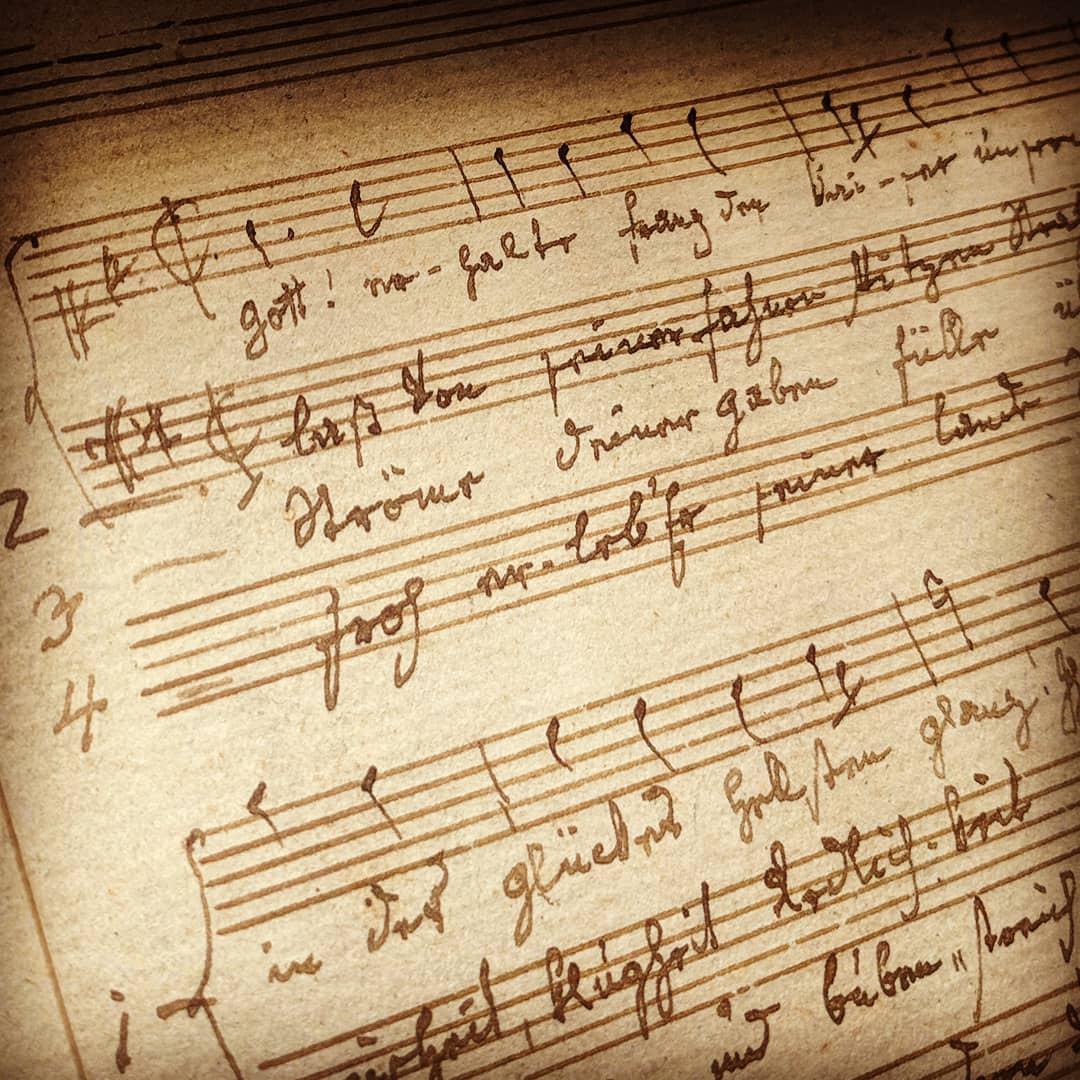 Gott! er-halte franz den Kai-ser unser
2 Laß Von seiner fahnen Spitzen Stra
3 Ströme deiner gaben fülle ü
4 froh er-leb' er seiner lande
in des glückes hellsten glanz! g
Klugheit Redlich-keit
und buben"streich